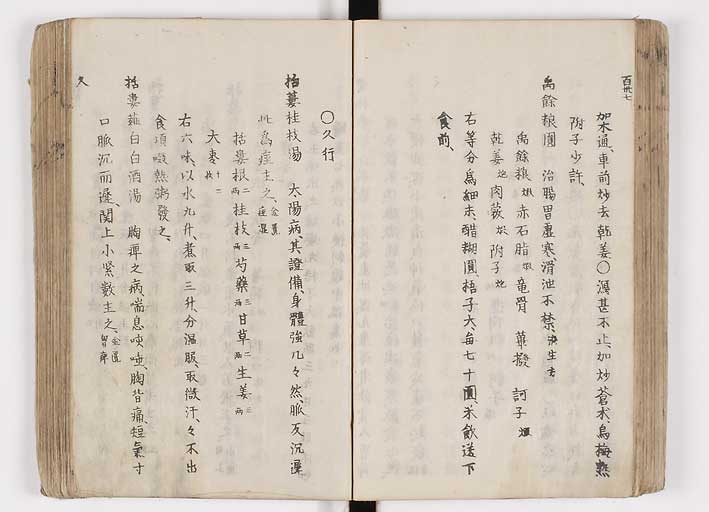 百卅七
加木通、車前炒去乾姜〇瀉甚不止、加炒蒼朮烏梅熟
附子少許、
禹餘粮圓　治腸胃虛寒滑泄不禁、済生方
禹餘粮煅赤石脂煅竜骨　蓽撥　訶子煨
乾姜炮肉蔲煨附子炮
右等分爲細末醋糊圓、梧子大、毎七十圓、米飲送下
食前、
〇久行
栝蔞桂枝湯　太陽病、其證備、身體強几々然、脈反沉遲
此爲痓主之、金匱痙湿
栝蔞根二両桂枝三両芍藥三両甘草二両生姜三両
大枣十二枚
右六味、以水九升、煮取三升、分温服、取微汗、々不出
食頃啜熱粥發之、
栝蔞薤白白酒湯　胸痺之病喘息咳唾、胸背痛、短氣寸
口脈沉而遲、関上小紧數主之、金匱胷痺
久